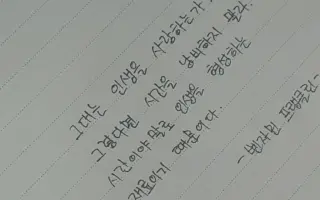 그대는 인생을 사랑하는가
그렇다면 시간을 낭비하지 말라.
시간이야말로 인생을 형성하는
재료이기 때문이다.
- 벤자민 프랭클린 -